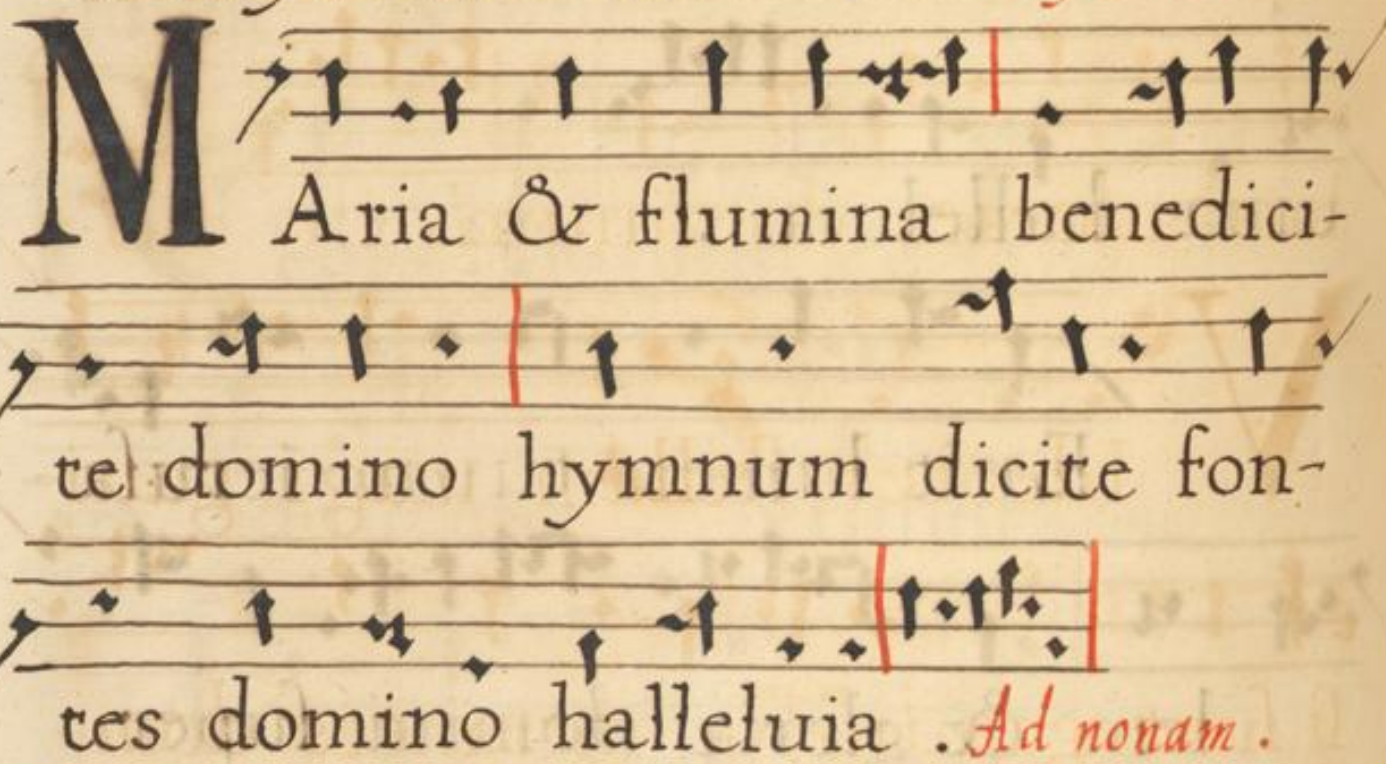 MAria & flumina benedici-
te domino hymnum dicite fon-
tes domino halleluia . Ad nonam .